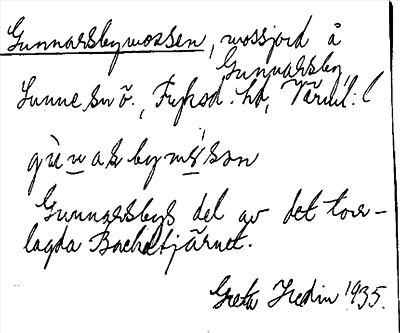 Gunnarsbymossen, mossjord å
Gunnarsby,
Sunne sn ö., Fryksd. hd, Värml. l
gùnasbymåsən
Gunnarsbys del av det torr-
lagda Backatjärnet.
Greta Hedin 1935.